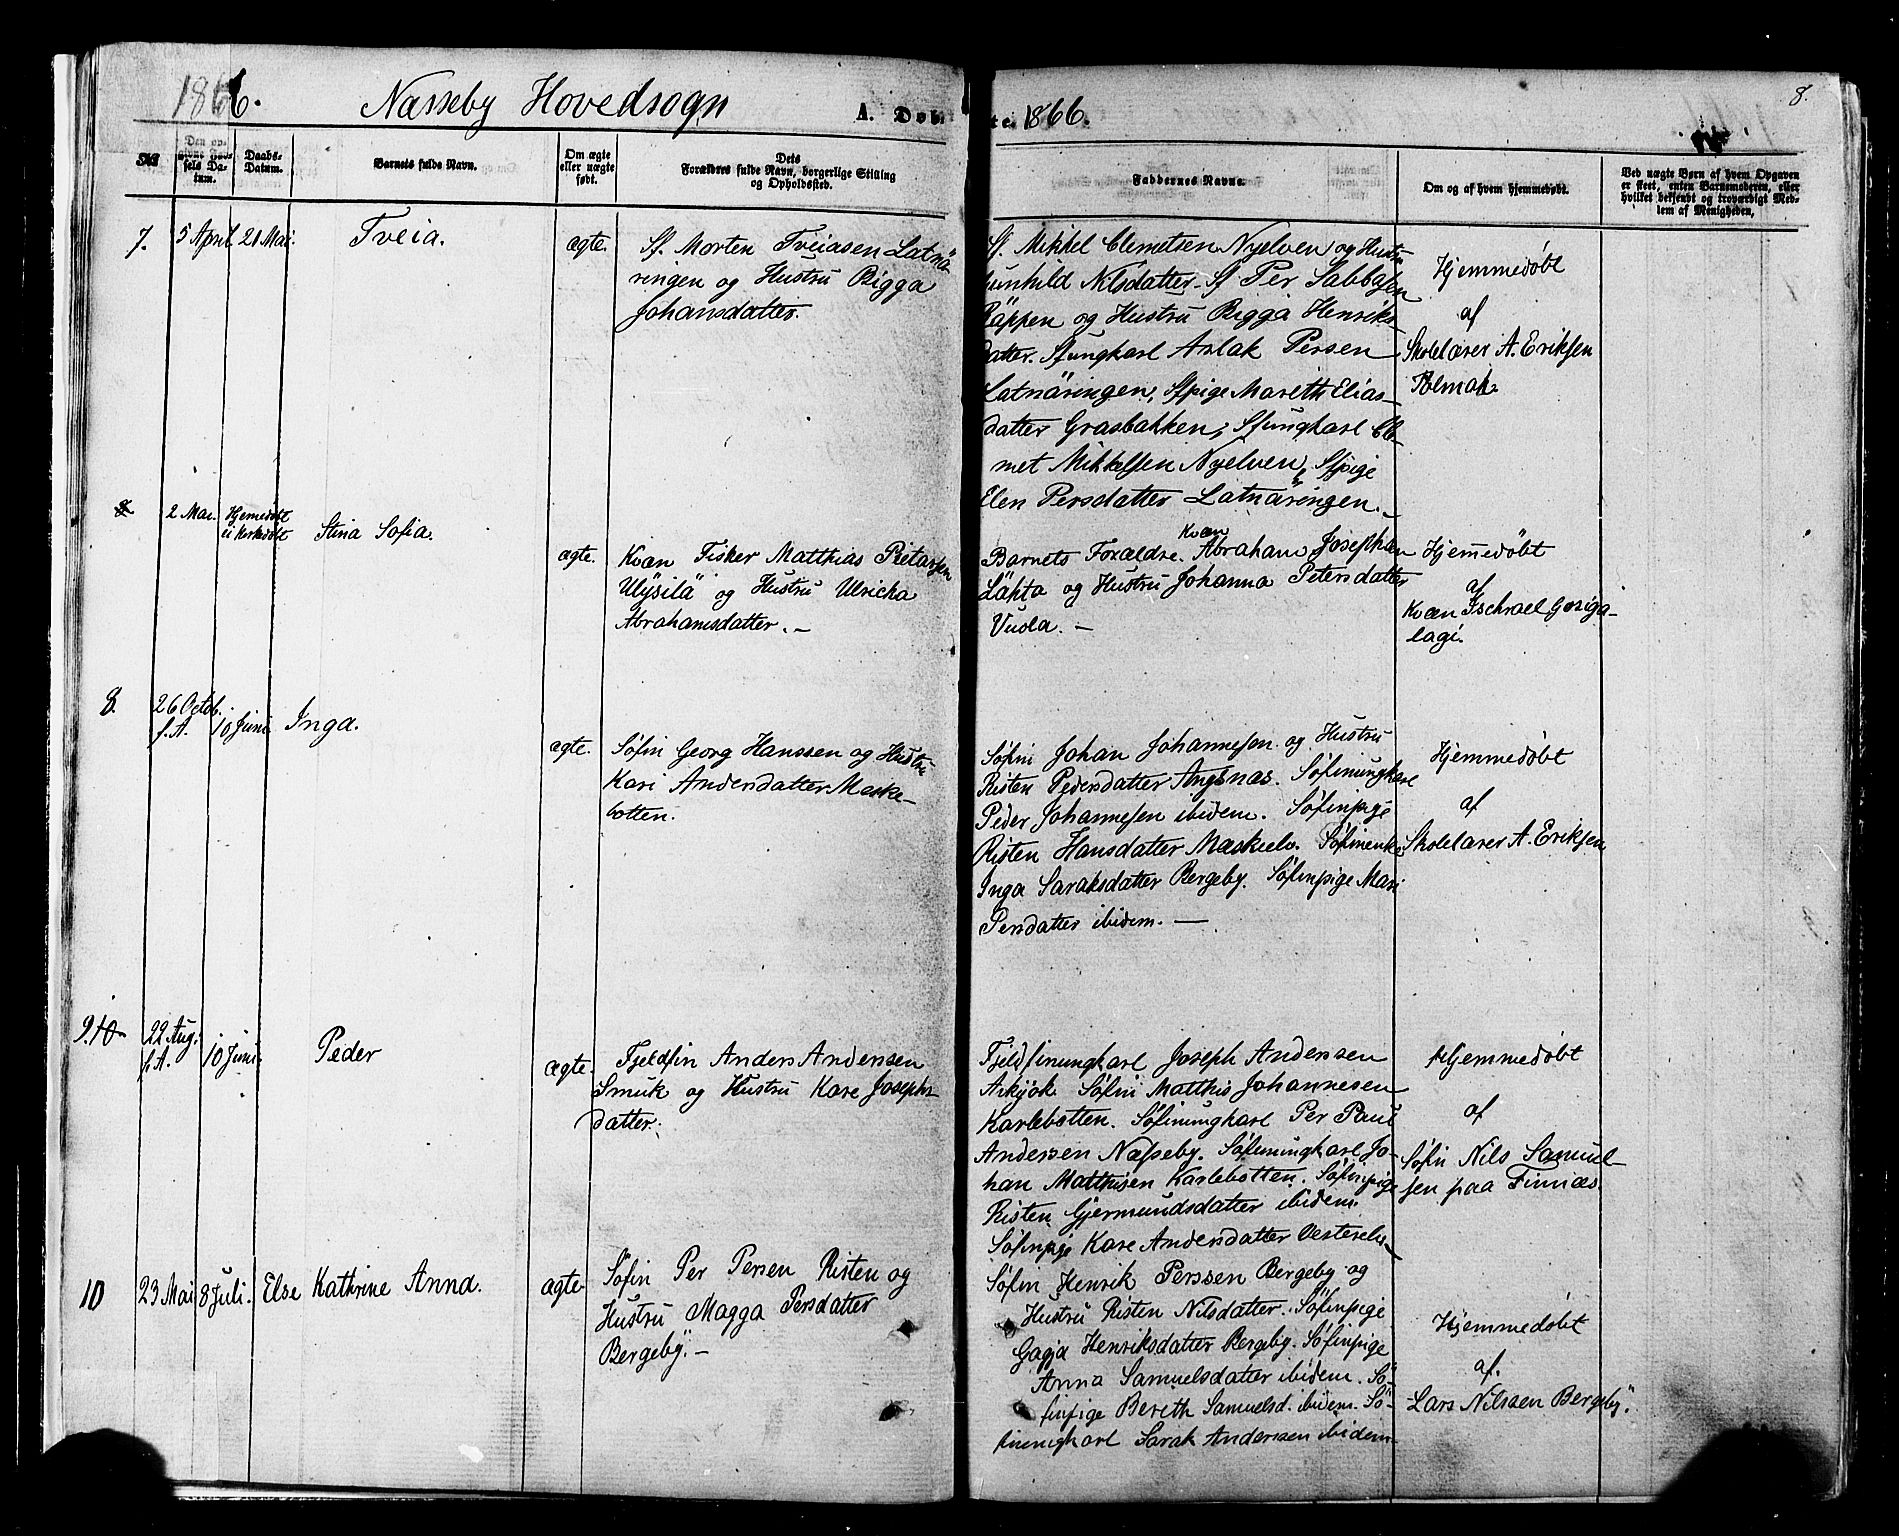 1866. Næsseby Hovedsogn A. Døb
te. 1866. 8.
Barnets fulde Navn.
Daabs-
Datum.
Om ægte
eller uægte
født.
Dets
Forældres fulde Navn, borgerlige Stilling
og Opholdssted.
Faddernes Navne.
Om og af hvem hjemmedøbt.
Ved uægte Børn af hvem Opgaven
er skeet, enten Barnemoderen, eller
hvilket bekjendt og troværdigt Med-
lem af Menigheden.
7. 5 April. 21 Mai. Tveia. ægte.
Sf. Morten Tveiasen Latnä-
ringen og Hustru Bigga
Johansdatter.
Sf. Mikkel Clemetsen Nyelven og Hustru
Gunhild Nilsdatter. Sf Per Sabbasen
og Hustru Bigga Henriks-
datter. Sfungkarl Aslak Persen
Latnäringen, Sfpige Mareth Elias-
datter Grasbakken, Sfungkarl Cle-
met Mikkelsen Nyelven, Sfpige
Elen Persdatter Latnäringen.
Hjemmedøbt
af
Skolelærer A. Eriksen
Polmak.
8. 2 Mai. Hjemedøbt
ei kirkedøbt
Stina Sofia. ægte.
Kvæn Fisker Matthias Pietarsen
Ulÿsilä og Hustru Ulricka
Abrahamsdatter. —
Barnets Forældre. Kvæn Abraham Josephsen
Lähta og Hustru Johanna Petersdatter
Vuola. —
Hjemmedøbt
af
Kvæn Ischrael
lagi.
8. 26 Octob.
f. A. 10 Juni. Inga. ægte.
Søfin Georg Hanssen og Hustru
Kari Andersdatter Meske-
botten.
Søfin Johan Johannesen og Hustru
Risten Pedersdatter Angsnæs. Søfinungkarl
Peder Johannesen ibidem. Søfinpige
Risten Hansdatter Mæskelv. Søfinenke
Inga Saraksdatter Bergeby. Søfinpige Mari
Persdatter ibidem. —
Hjemmedøbt
af
Skolelærer A. Eriksen
9. 10 22 Aug.
f. A. 10 Juni. Peder ægte.
Fjeldfin Anders Andersen
Smuk og Hustru Kare Josephs-
datter.
Fjeldfinungkarl Joseph Anderssen
Arkjok Søfin Matthis Johannesen
Karlebotten. Søfinungkarl Per Paul
Andersen Næsseby. Søfinungkarl Jo-
han Matthisen Karlebotten. Søfinpige
Risten Gjermundsdatter ibidem.
Søfinpige Kare Andersdatter Vesterelv. —
Hjemmedøbt
af
Søfin Nils Samuel-
sen paa Finnæs.
10 23 Mai 8 Juli. Else Kathrine Anna. ægte
Søfin Per Persen Risten og
Hustru Magga Persdatter
Bergebÿ. —
Søfin Henrik Perssen Bergeby og
Hustru Risten Nilsdatter. Søfinpige
Gagja Henriksdatter Bergeby. Søfinpige
Anna Samuelsdatter ibidem. Sö-
finpige Bereth Samuelsd. ibidem. Sö-
finungkarl Sarak Anderssen ibidem. —
Hjemmedøbt
af.
Lars Nilssen Bergeby.